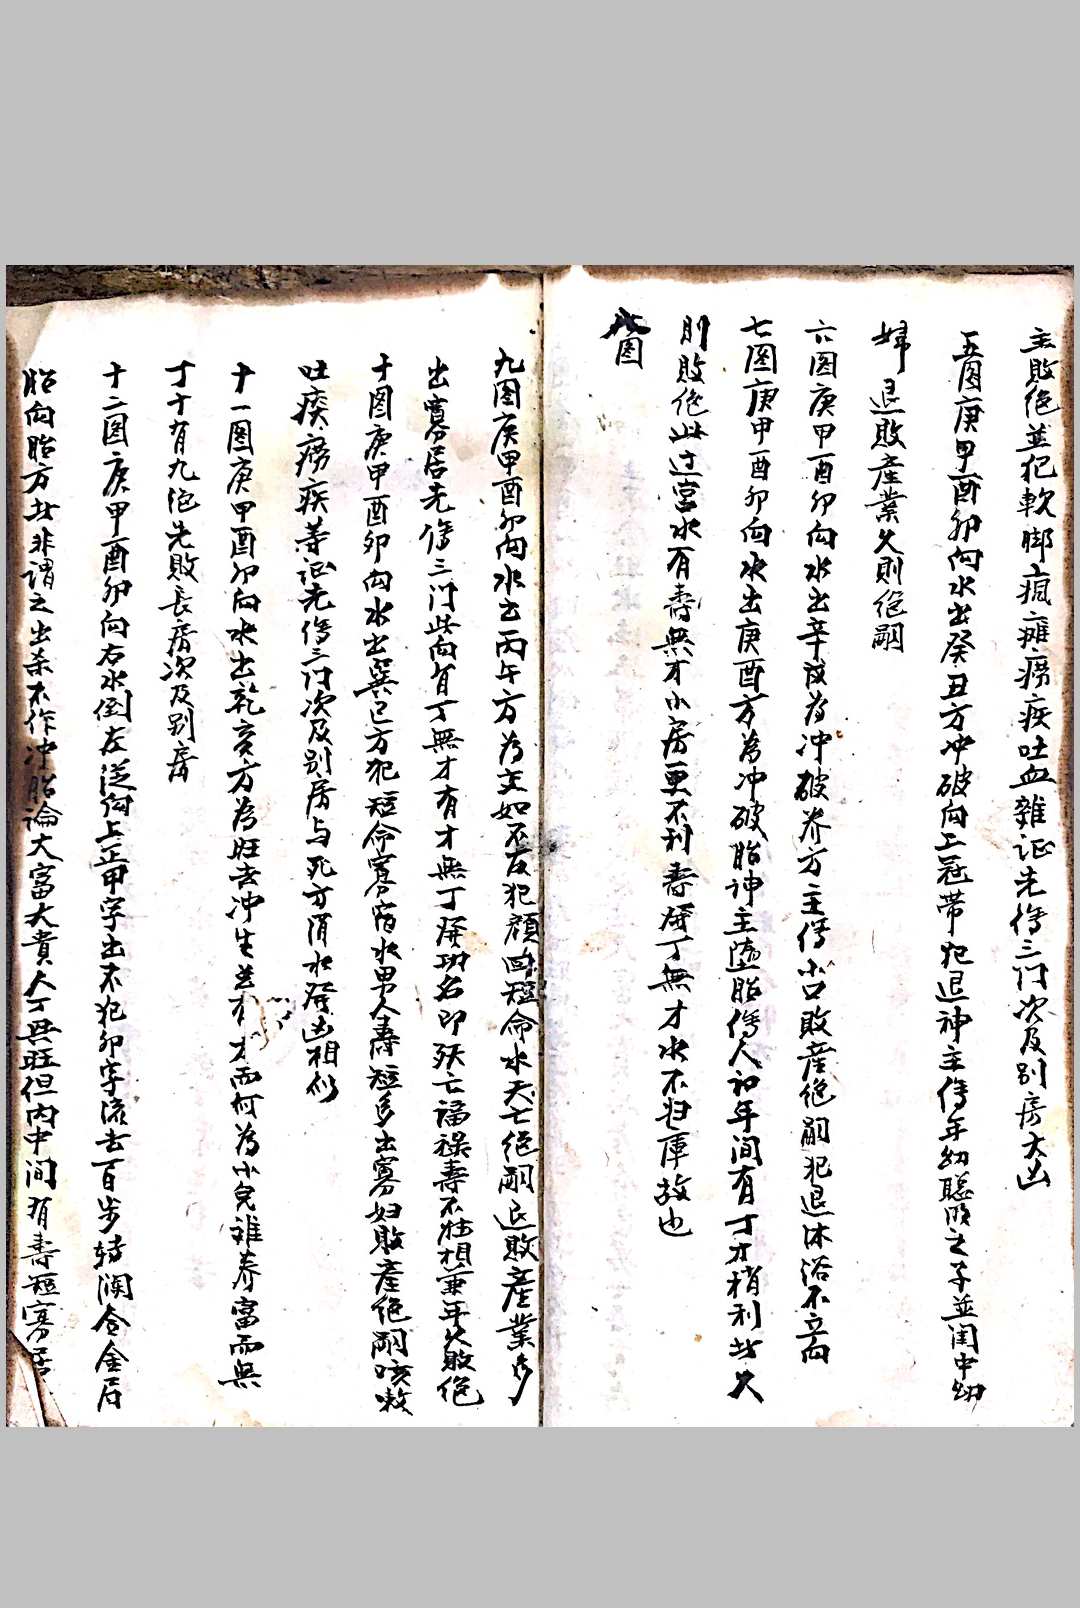 主敗绝並犯軟脚瘋癱癆疾吐血雜证先傷三门次及别房大凶
五图庚甲酉卯向水出癸丑方冲破向上冠帶犯退神主傷年幼聪明之子並闺中幼
婦退敗產業久則绝嗣
六图庚甲酉卯向水出辛戌為冲破养方主傷小口敗産绝嗣犯退沐浴不立向
七图庚甲酉卯向水出庚酉方為冲破胎神主墮胎傷人初年间有丁才稍利此久
則敗绝此过宫水有壽無才小房更不利壽發丁無才水不归庫故也
八图
九图庚甲酉卯向水出丙午方為交如不及犯顔回短命水夭亡绝嗣退敗産業多
出寡居先傷三门此向有丁無才有才無丁發功名即殀亡福禄壽不能相兼年久敗绝
十图庚甲酉卯向水出巽巳方犯短命寡宿水男人壽短多出寡妇敗產绝嗣咳嗽
吐痰癆疾等证先傷三门次及别房与死方消水發凶相似
十一图庚甲酉卯向水出乾亥方為旺去冲生 才而何為小兒难养富而無
丁十有九绝先敗長房次及别房
十二图庚甲酉卯向右水倒左從向上正甲字出不犯卯字流去百步转阑合金局
胎向胎方此非谓之出杀不作冲胎論大富大貴人丁興旺但内中间有壽短寡居